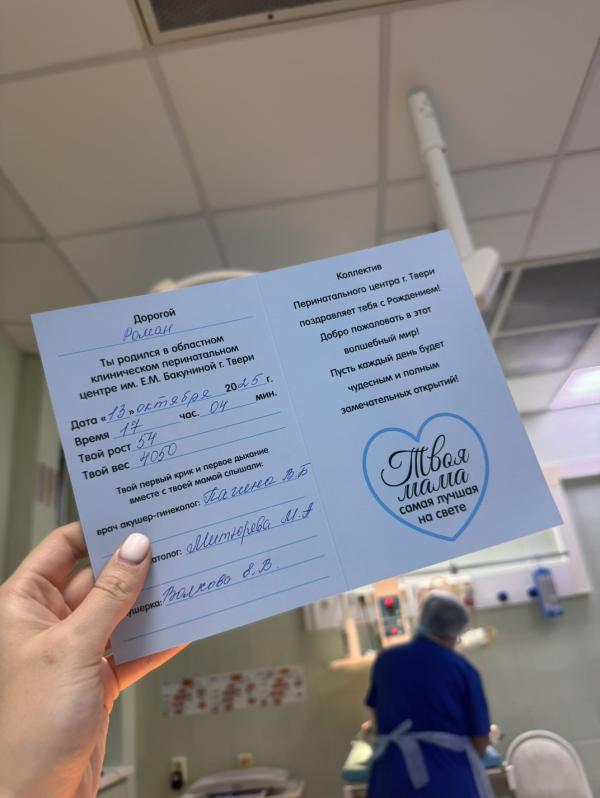 Дорогой
Роман
Ты родился в областном
клиническом перинатальном
центре им. Е.М. Бакуниной г. Твери
Дата «13» октября 2025 г.
Время 17 час. 04 мин.
Твой рост 54
Твой вес 4050
Твой первый крик и первое дыхание
вместе с твоей мамой слышали:
врач акушер-гинеколог: Пагина В.Б
атолог: Митюрева М.А
ушерка: Волкова Е.В.
Коллектив
Перинатального центра г. Твери
поздравляет тебя с Рождением!
Добро пожаловать в этот
волшебный мир!
Пусть каждый день будет
чудесным и полным
замечательных открытий!
Твоя
мама
самая лучшая
на свете